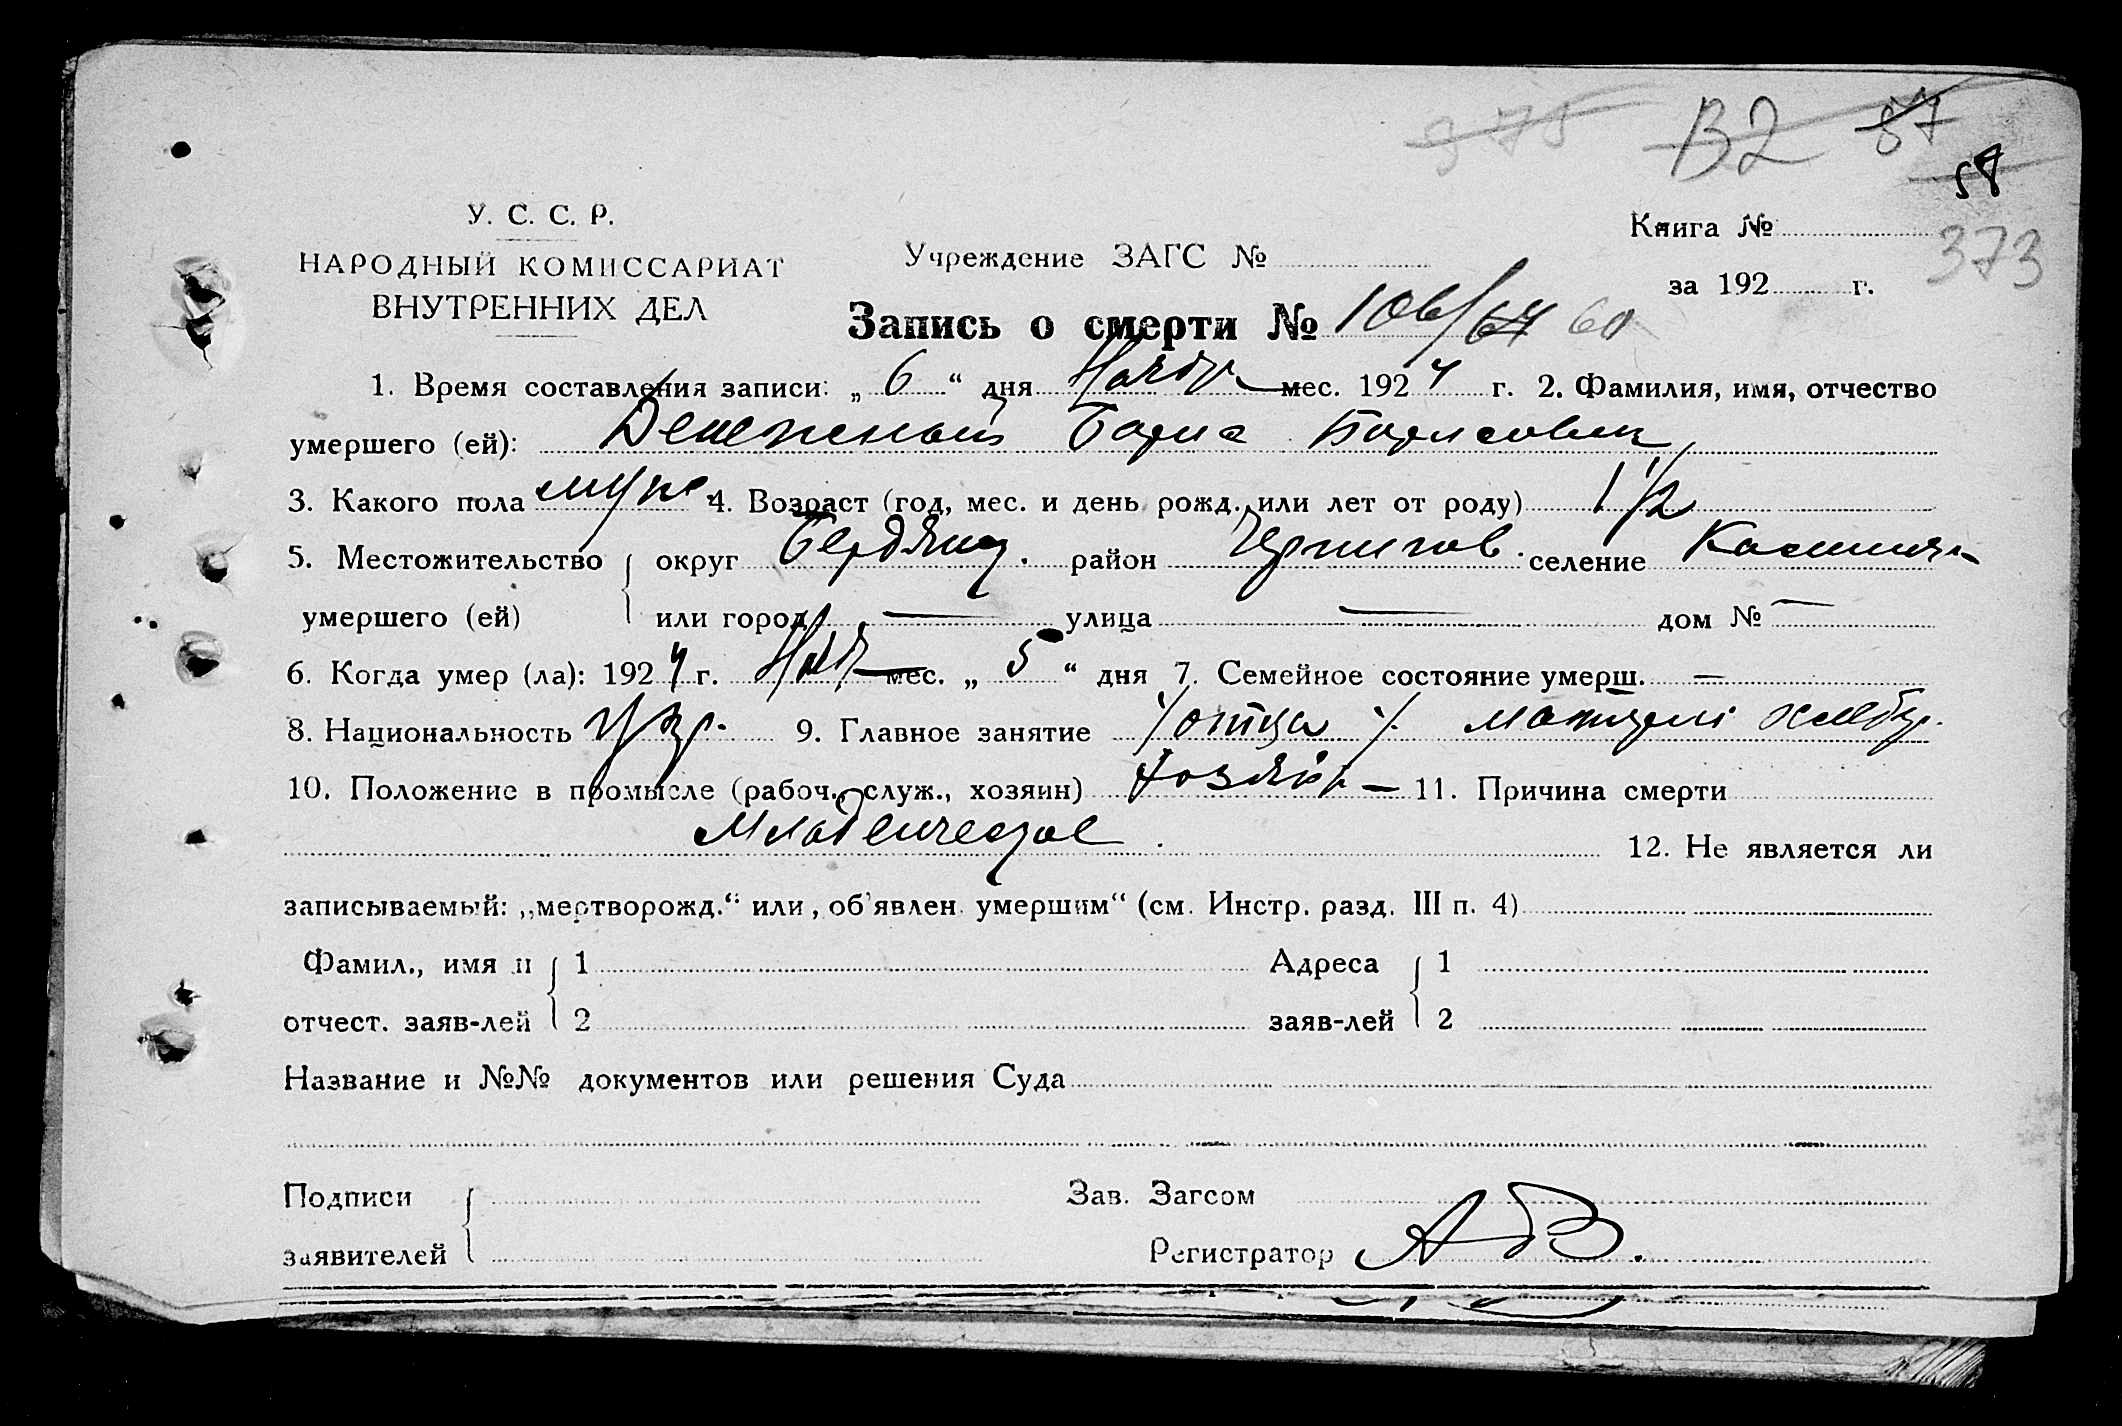 975 В2 57
58
У. С. С. Р.
НАРОДНЫЙ КОМИССАРИАТ
ВНУТРЕННИХ ДЕЛ
Учреждение ЗАГС №
Книга №
373
за 192 г.
Запись о смерти № 106/64 60
1. Время составления записи: „ 6 “ дня Ноября мес. 1924 г. 2. Фамилия, имя, отчество
умершего (ей): Бориса Борисович
3. Какого пола муж. 4. Возраст (год, мес. и день рожд. или лет от роду) 1 1/2
5. Местожительство округ Бердянск. район Чернигов. селение
умершего (ей) или город — улица — дом № —
6. Когда умер (ла): 1924 г. Нояб. мес. „ 5 “ дня 7. Семейное состояние умерш. —
8. Национальность укр. 9. Главное занятие /отца/. хлебор.
10. Положение в промысле (рабоч., служ., хозяин) хозяин — 11. Причина смерти
Младенческое. 12. Не является ли
записываемый: „мертворожд.“ или „об'явлен. умершим“ (см. Инстр. разд. III п. 4)
Фамил., имя и 1 Адреса 1
отчест. заяв-лей 2 заяв-лей 2
Название и №№ документов или решения Суда
Подписи Зав. Загсом
заявителей Регистратор